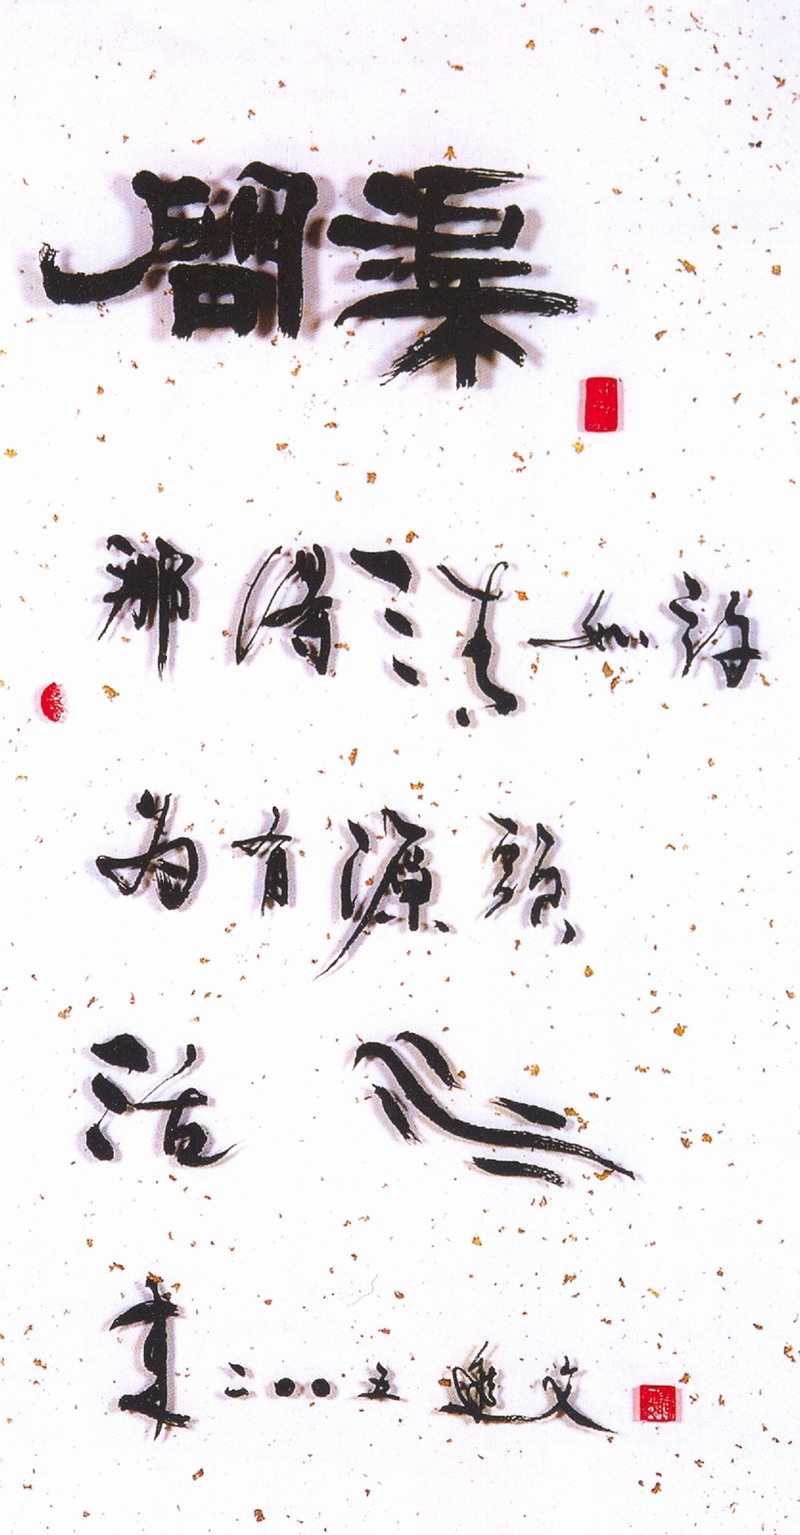 問渠
那得清如許
为有源頭
活水
来二〇〇五